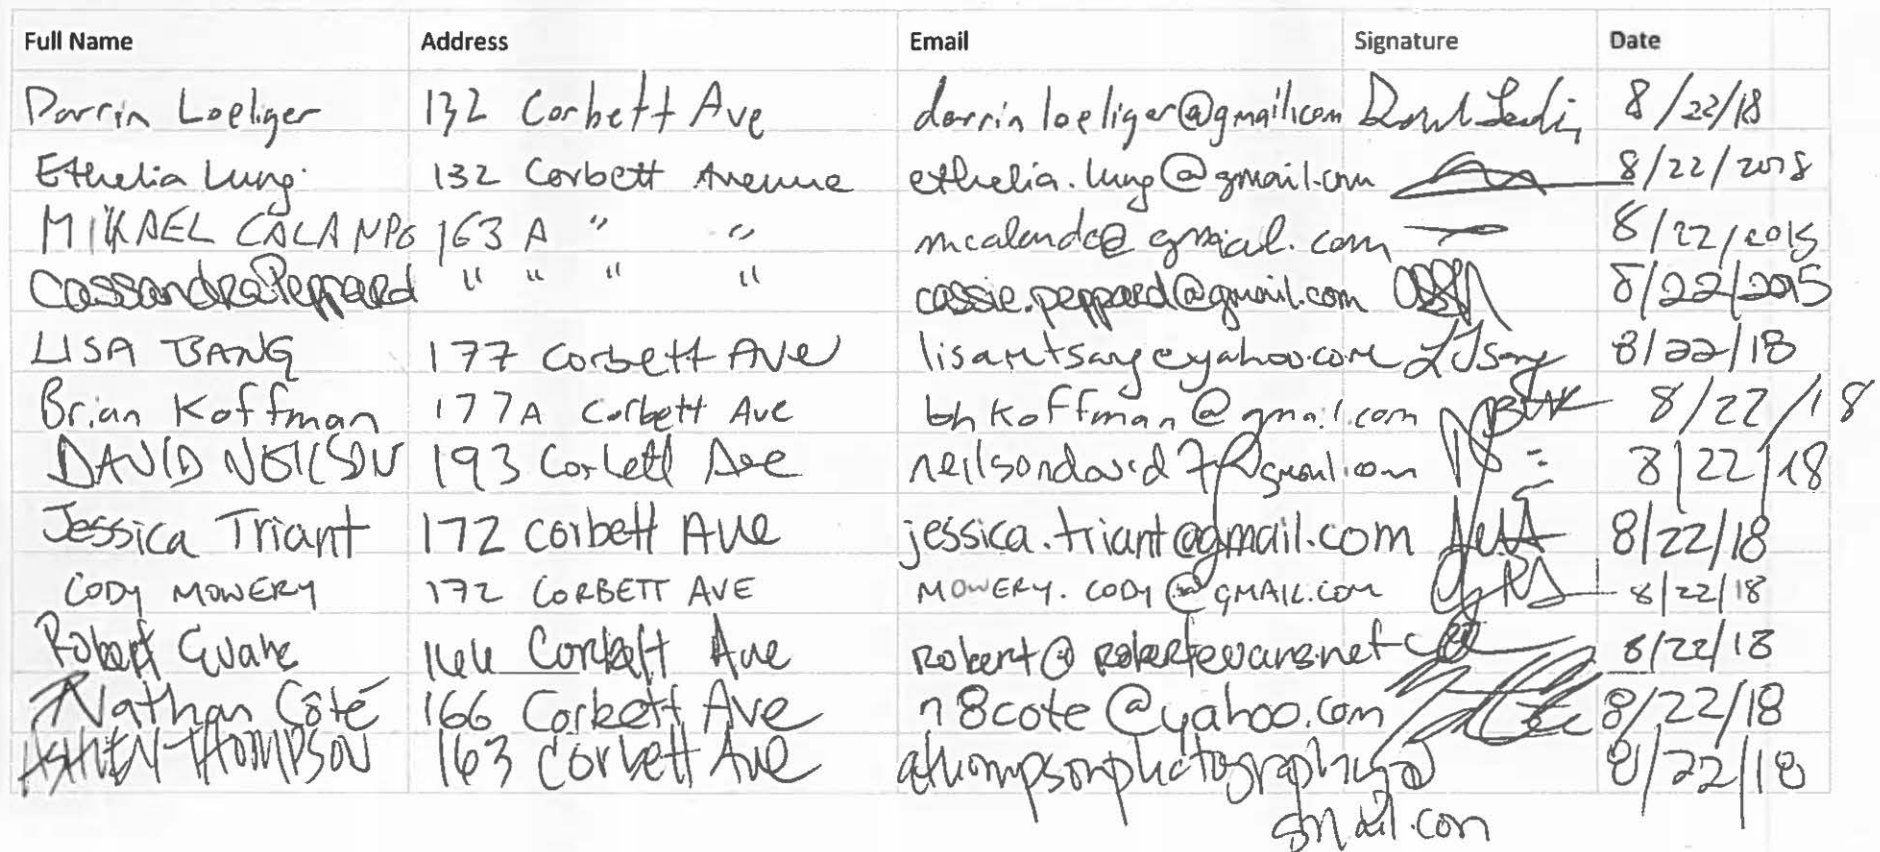 Full Name Address Email Signature Date
Darrin Loeliger 132 Corbett Ave darrinloeliger@gmail.com 8/22/18
Ethelia Lung 132 Corbett Avenue ethelia.lung@gmail.com 8/22/2018
MIKAEL CALANDO 163 A " " mcalando@gmail.com 8/22/2018
Cassandra Peppard " " " " cassie.peppard@gmail.com 8/22/2015
LISA TSANG 177 Corbett AVe lisamtsang@yahoo.com LTsang 8/22/18
Brian Koffman 177A Corbett Ave bhkoffman@gmail.com 8/22/18
DAVID NEILSON 193 Corbett Ave neilsondavid7@gmail.com 8/22/18
Jessica Triant 172 Corbett AVe jessica.triant@gmail.com 8/22/18
CODY MOWERY 172 CORBETT AVE MOWERY.CODY@GMAIL.COM 8/22/18
Robert Evans 166 Corbett Ave Robert@robertevans.net 8/22/18
Nathan Côté 166 Corbett Ave n8cote@yahoo.com 8/22/18
ASHLEY THOMPSON 163 Corbett Ave athompsonphotography@ 8/22/18
gmail.com